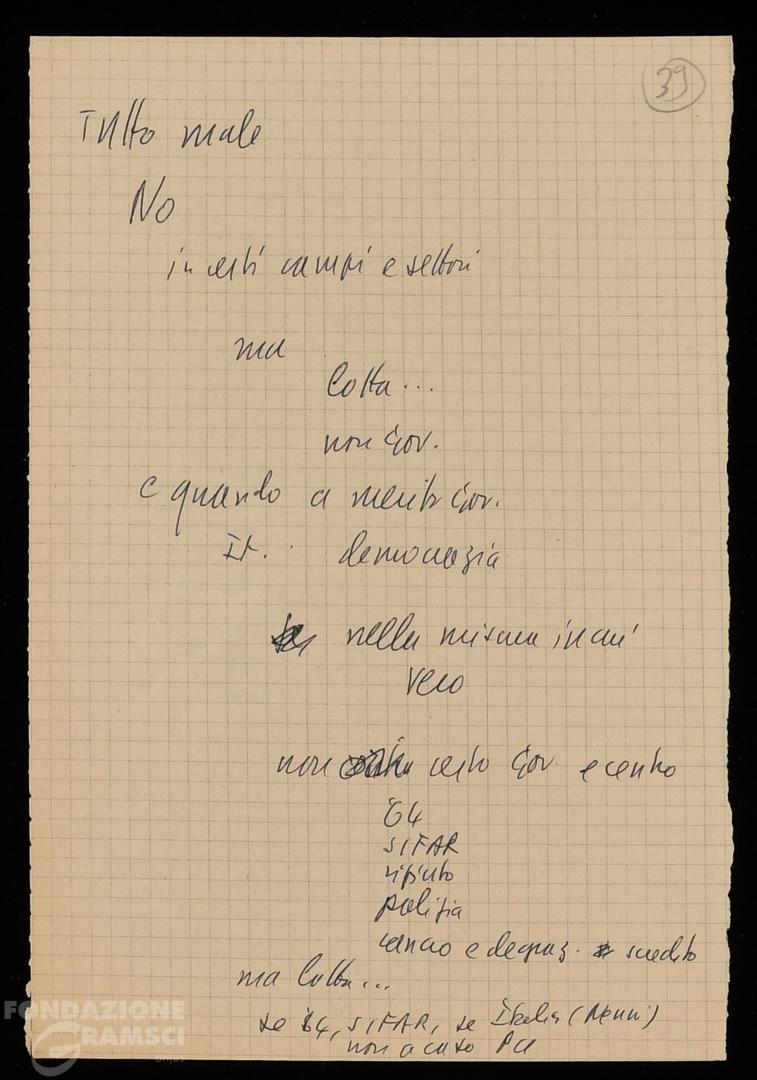 39
Tutto male
No
in certi campi e settori
ma
lotta...
non Gov.
e quando a merito Gov.
It. democrazia
nella misura in cui
vero
non certo Gov. e centro
64
SIFAR
rifiuto
polizia
e degraz. scredito
ma lotta...
se 64, SIFAR, se Italia (Nenni)
non a caso PCI
FONDAZIONE
GRAMSCI
onlus